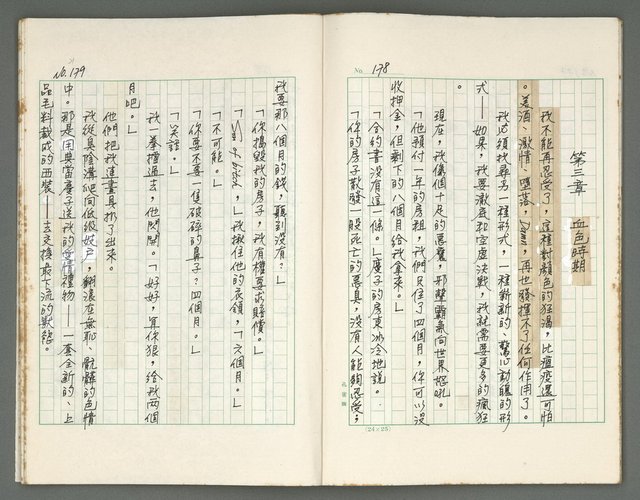 No. 178
第三章 血色時期
我不能再忍受了，這種對顏色的狂渴，比瘟疫還可怕
。美酒、激情、墮落，再也發揮不了任何作用了。
我必須找尋另一種形式，一種嶄新的、驚心動魄的形
式——如果，我要澈底和空虛決戰，我就需要更多的瘋狂
。
現在，我儼個十足的惡魔，邪孽霸氣向世界怒吼。
「他預付一年的房租，我們只住了四個月，你可以沒
收押金，但剩下的八個月給我拿來。」
「合約書沒有這一條。」瘦子的房東冰冷地說。
「你的房子散發一股死亡的惡臭，沒有人能夠忍受，
(24×25)
No. 179
我要那八個月的錢，聽到沒有？」
「你搗毀我的房子，我有權要求賠償。」
「Son of bitch，」我揪住他的衣領，「六個月。」
「不可能。」
「你要不要一隻破碎的鼻子？四個月。」
「笑話。」
我一拳擂過去，他閃開。「好好，算你狠，給我兩個
月吧。」
他們把我連畫具扔了出來。
我從臭陰溝爬向低級妓戶，翻滾在無恥、骯髒的色情
中。那是用典當慶子送我的定情禮物——一套全新的、上
品毛料裁成的西裝——去交換最下流的獸慾。